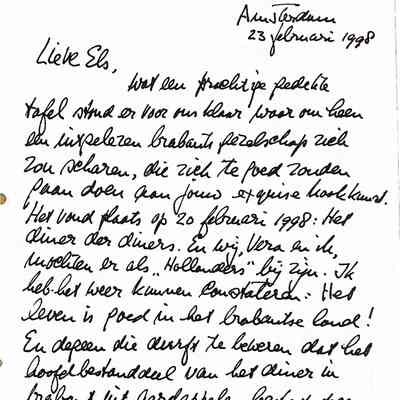 Amsterdam
23 februari 1998
Lieve Els,
Wat een prachtige gedekte
tafel stond er voor ons klaar waar om heen
een uitgelezen brabants gezelschap zich
zou scharen, die zich te goed zouden
gaan doen aan jouw exquise kookkunst.
Het vond plaats op 20 februari 1998: Het
diner der diners. En wij, Vera en ik,
mochten er als "Hollanders" bij zijn. Ik
heb het weer kunnen constateren: Het
leven is goed in het brabantse land!
En degeen die durft te beweren dat het
hoofdbestanddeel van het diner in
brabant uit aardappelen